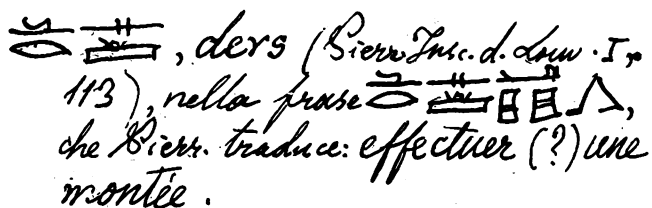 , ders (Pierr. Insc. d. Louv. I,
113), nella frase ,
che Pierr. traduce: effectuer (?) une
montée.